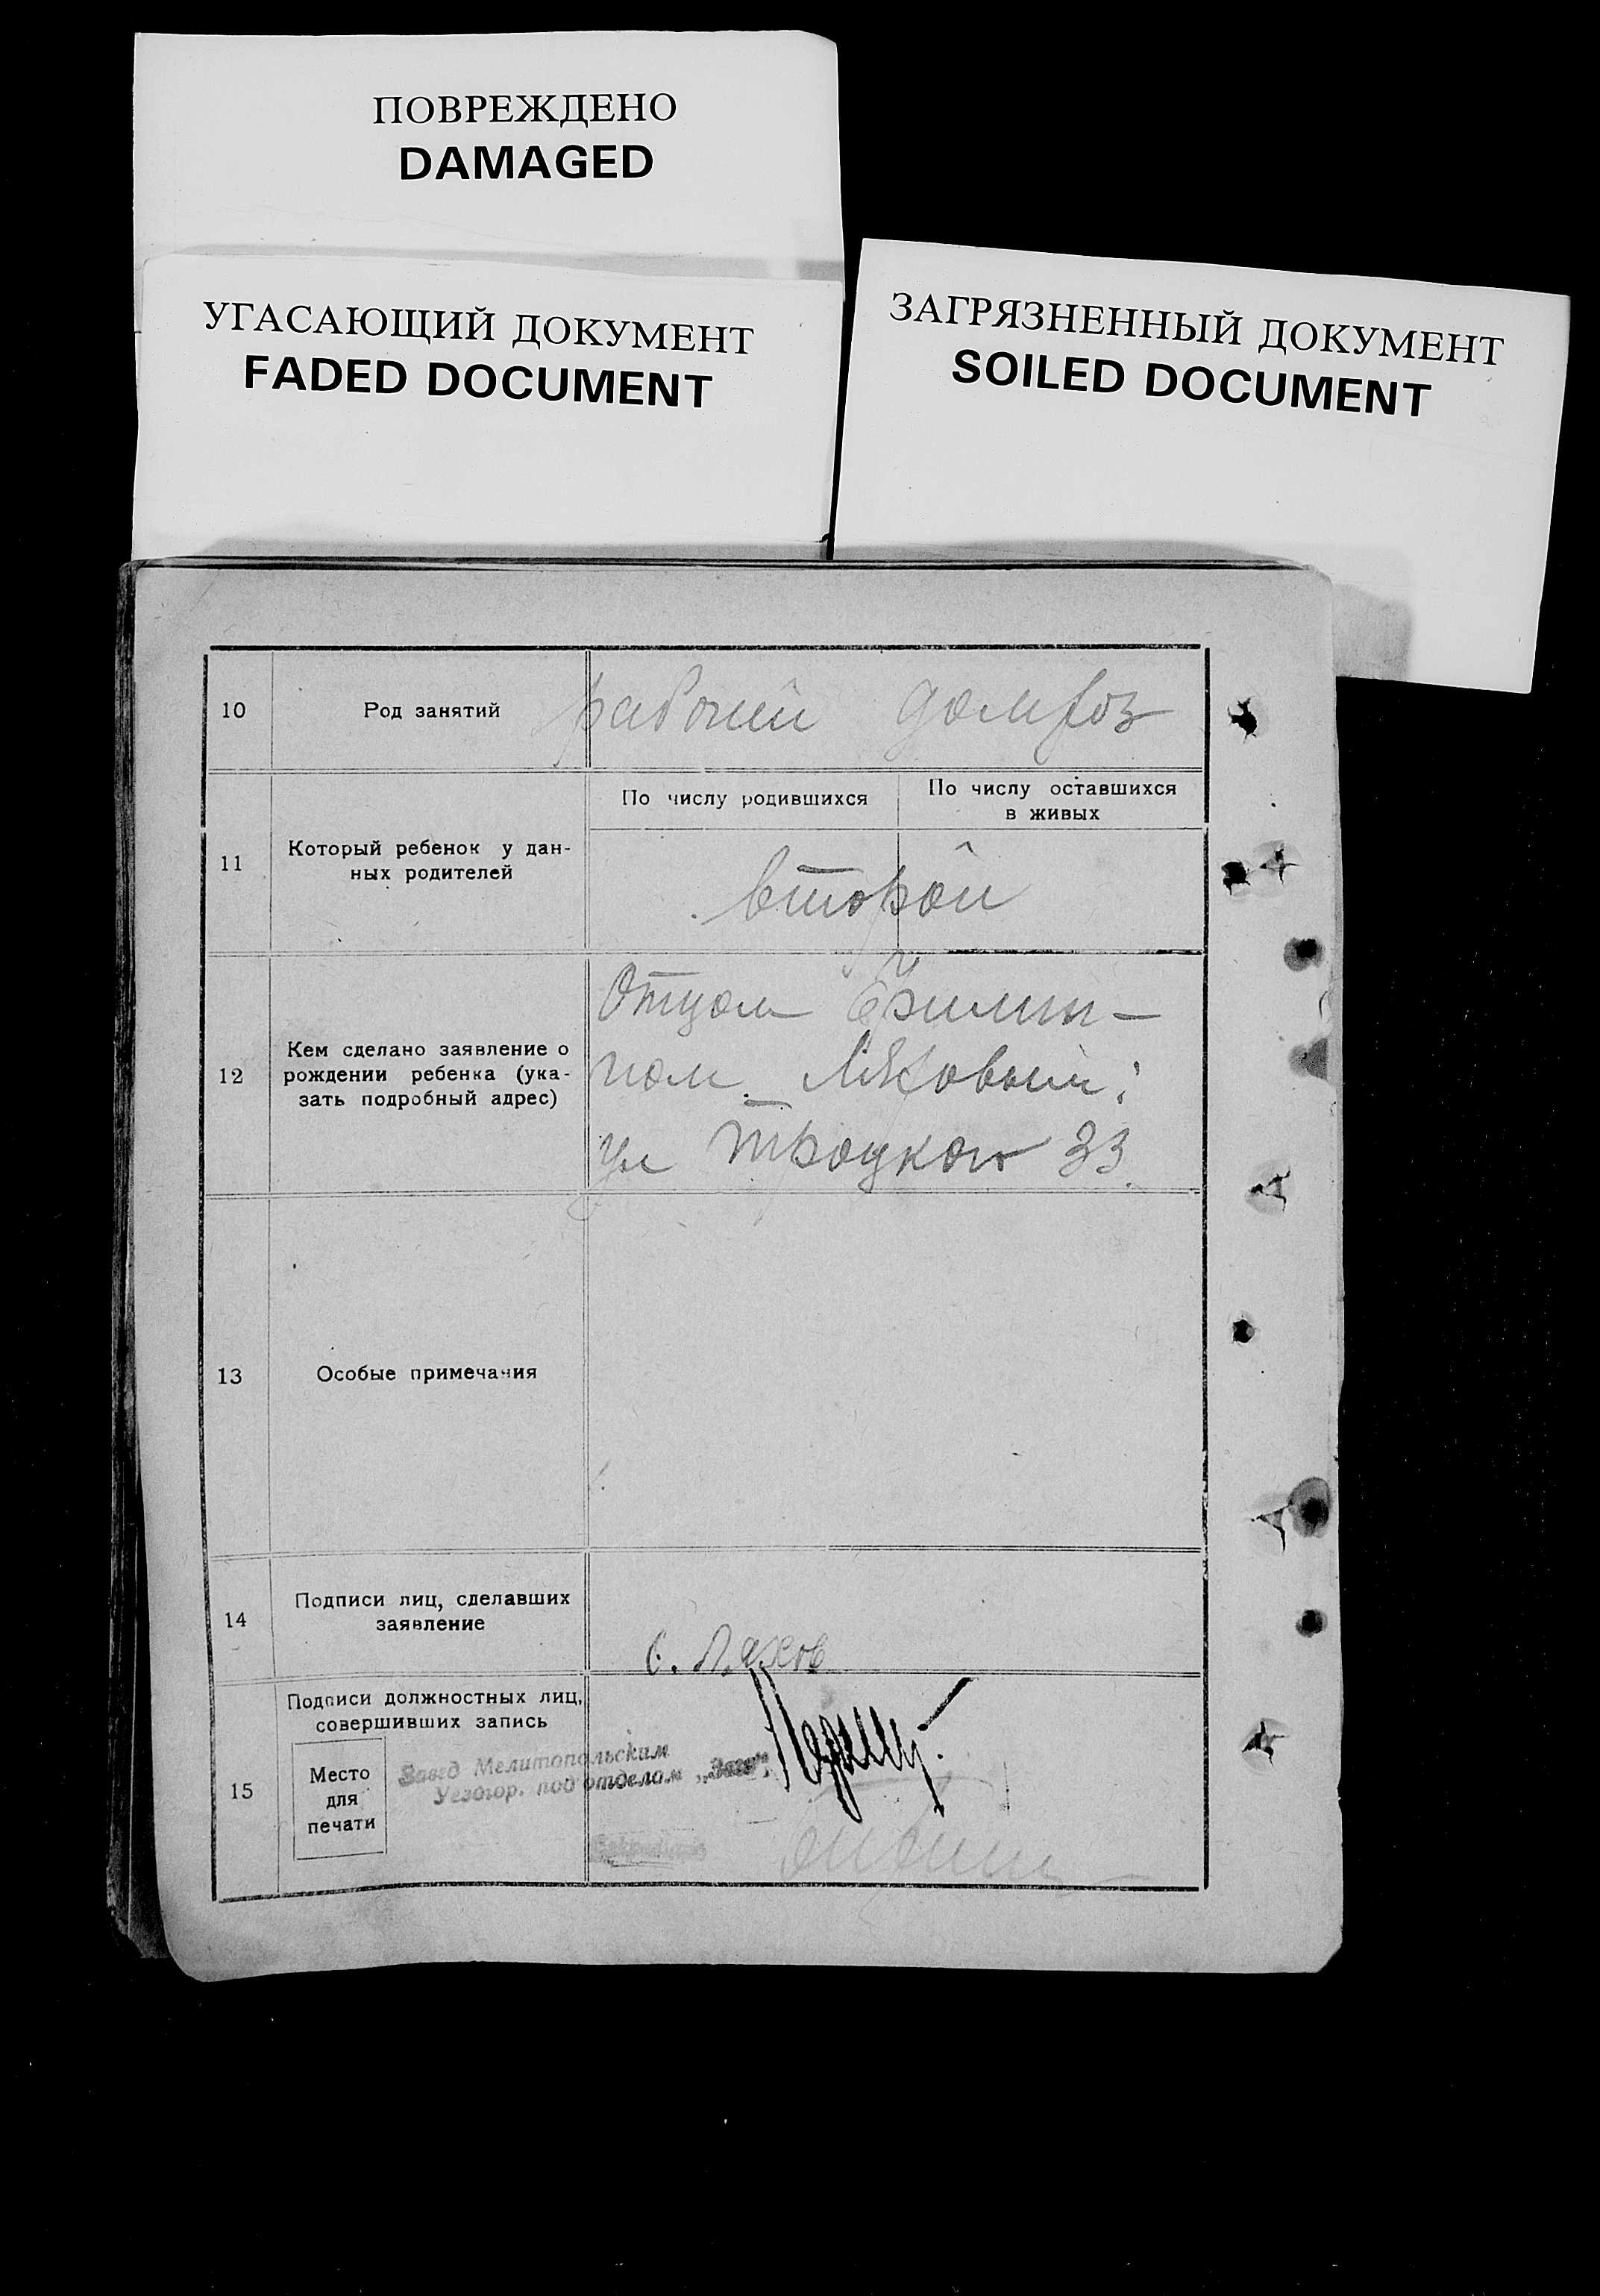 ПОВРЕЖДЕНО
DAMAGED
УГАСАЮЩИЙ ДОКУМЕНТ
FADED DOCUMENT
ЗАГРЯЗНЕННЫЙ ДОКУМЕНТ
SOILED DOCUMENT
10
Род занятий
рабочий домхоз
11
Который ребенок у дан-
ных родителей
По числу родившихся
По числу оставшихся
в живых
второй
12
Кем сделано заявление о
рождении ребенка (ука-
зать подробный адрес)
Отцом Филип-
пом Ляховым;
ул Троцкого 33
13
Особые примечания
14
Подписи лиц, сделавших
заявление
Ляхов
15
Подписи должностных лиц,
совершивших запись
Место
для
печати
Завед Мелитопольским
Уездгор. подотделом „Загс"